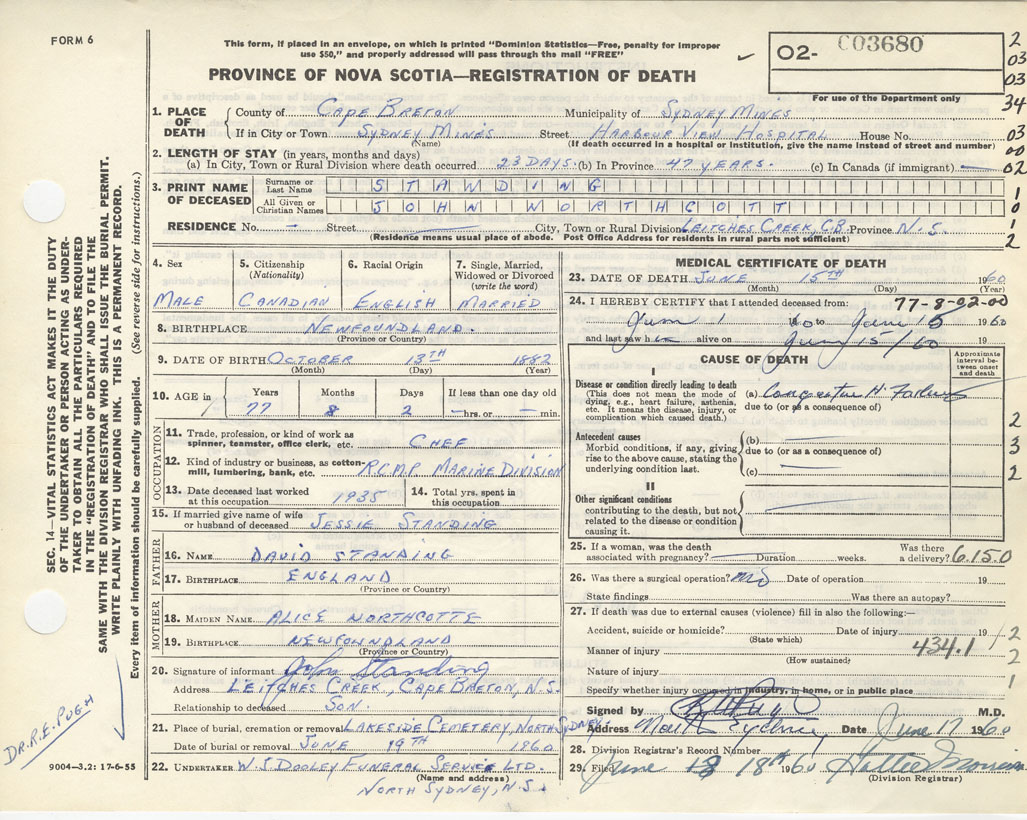 FORM 6
This form, if placed in an envelope, on which is printed "Dominion Statistics—Free, penalty for improper
use $50," and properly addressed will pass through the mail "FREE"
PROVINCE OF NOVA SCOTIA—REGISTRATION OF DEATH
02- C03680
For use of the Department only
2
03
03
34
03
00
02
1
0
1
2
SEC. 14—VITAL STATISTICS ACT MAKES IT THE DUTY
OF THE UNDERTAKER OR PERSON ACTING AS UNDER-
TAKER TO OBTAIN ALL THE PARTICULARS REQUIRED
IN THE "REGISTRATION OF DEATH" AND TO FILE THE
SAME WITH THE DIVISION REGISTRAR WHO SHALL ISSUE THE BURIAL PERMIT.
WRITE PLAINLY WITH UNFADING INK. THIS IS A PERMANENT RECORD.
Every item of information should be carefully supplied. (See reverse side for instructions.)
1. PLACE OF DEATH
County of CAPE BRETON Municipality of SYDNEY MINES
If in City or Town SYDNEY MINES Street HARBOUR VIEW HOSPITAL House No.
(Name) (If death occurred in a hospital or institution, give the name instead of street and number)
2. LENGTH OF STAY (in years, months and days)
(a) In City, Town or Rural Division where death occurred 23 DAYS. (b) In Province 47 YEARS. (c) In Canada (if immigrant) —
3. PRINT NAME OF DECEASED
Surname or Last Name STANDING
All Given or Christian Names JOHN NORTHCOTT
RESIDENCE No. — Street — City, Town or Rural Division LEITCHES CREEK, C.B. Province N.S.
(Residence means usual place of abode. Post Office Address for residents in rural parts not sufficient)
4. Sex
MALE
5. Citizenship (Nationality)
CANADIAN
6. Racial Origin
ENGLISH
7. Single, Married, Widowed or Divorced (write the word)
MARRIED
8. BIRTHPLACE NEWFOUNDLAND.
(Province or Country)
9. DATE OF BIRTH OCTOBER 13TH 1882
(Month) (Day) (Year)
10. AGE in Years Months Days If less than one day old
77 8 2 — hrs. or — min.
OCCUPATION
11. Trade, profession, or kind of work as spinner, teamster, office clerk, etc. CHEF
12. Kind of industry or business, as cotton-mill, lumbering, bank, etc. R.C.M.P MARINE DIVISION
13. Date deceased last worked at this occupation 1935
14. Total yrs. spent in this occupation
15. If married give name of wife or husband of deceased JESSIE STANDING
FATHER
16. NAME DAVID STANDING
17. BIRTHPLACE ENGLAND
(Province or Country)
MOTHER
18. MAIDEN NAME ALICE NORTHCOTTE
19. BIRTHPLACE NEWFOUNDLAND
(Province or Country)
20. Signature of informant John Standing
Address LEITCHES CREEK, CAPE BRETON, N.S.
Relationship to deceased SON.
21. Place of burial, cremation or removal LAKESIDE CEMETERY, NORTH SYDNEY.
Date of burial or removal JUNE 19TH 1960
22. UNDERTAKER W.J. DOOLEY FUNERAL SERVICE LTD.
(Name and address)
NORTH SYDNEY, N.S.
DR. R.E. PUGH
9004—3.2: 17-6-55
MEDICAL CERTIFICATE OF DEATH
23. DATE OF DEATH JUNE 15TH 1960
(Month) (Day) (Year)
24. I HEREBY CERTIFY that I attended deceased from: 77-8-02-00
June 1 60 to June 15 1960
and last saw h alive on June 15/60 19
CAUSE OF DEATH
Approximate interval between onset and death
I
Disease or condition directly leading to death
(This does not mean the mode of dying, e.g., heart failure, asthenia, etc. It means the disease, injury, or complication which caused death.)
(a) Congestive H. Failure
due to (or as a consequence of)
Antecedent causes
Morbid conditions, if any, giving rise to the above cause, stating the underlying condition last.
(b) —
due to (or as a consequence of)
(c) —
II
Other significant conditions contributing to the death, but not related to the disease or condition causing it.
2
3
2
25. If a woman, was the death associated with pregnancy? — Duration weeks. Was there a delivery? 6.15.0
26. Was there a surgical operation? no Date of operation 19
State findings Was there an autopsy?
27. If death was due to external causes (violence) fill in also the following:—
Accident, suicide or homicide? Date of injury 19
(State which)
Manner of injury 434.1
(How sustained)
Nature of injury
Specify whether injury occurred in industry, in home, or in public place
2
2
1
Signed by M.D.
Address North Sydney Date June 17 1960
28. Division Registrar's Record Number
29. Filed June 18th 1960 Hattie
(Division Registrar)